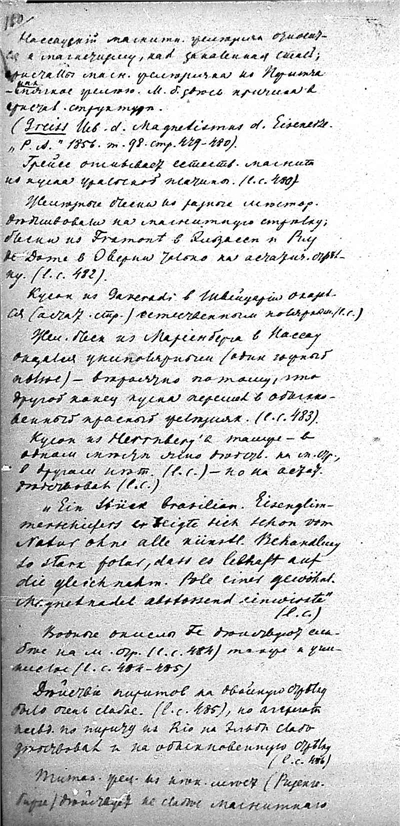 180/
Нассаускій магнитн. железняк относит-
ся к магнетизму, как закаленная сталь;
кристаллы магн. железняка из
мягкое железо. М. б. здесь причина в
кристал. структуре.
(Greiss Ueb. d. Magnetismus d. Eisenerze.
„P. A." 1856. т. 98. стр. 479-480).
Грейсс описывает естеств. магнит
из куска уральской платины. (l. c. 480)
Железные блески из разных местор.
действовали на магнитную стрелку;
блески из Framont в Эльзасе и Puy
de Dome в Оверни только на астатич. стрел-
ку. (l. c. 482).
Кусок из в Швейцаріи оказал-
ся (астат. стр.) естественным (l. c.)
Жел. блеск из Маріенберга в Нассау
оказался униполярным (один южный
полюс) – вероятно потому, что
другой конец куска перешел в обыкно-
венный красный железняк. (l. c. 483).
Кусок из Herrnberg'a также – в
одном месте действ. на м. стр.,
в другом нет. (l. c.) – но на астат.
действовал (l. c.)
„Ein Stück brasilian. Eisenglim-
merschiefers zeigte sich schon von
Natur ohne alle künstl. Behandlung
so stark polar, dass es lebhaft auf
die gleichnahm. Pole einer gewöhnl.
Magnetnadel abstossend einwirkte"
(l. c.)
Водные окислы Fe действуют сла-
бее на м. стр. (l. c. 484) также и
(l. c. 484-485)
Действіе пиритов на двойную стрелку
было очень слабое. (l. c. 485), но
пириту из Rio на Эльбе слабо
действовал и на обыкновенную стрелку
(l. c. 486)
Титан. жел. из мест (Ризенге-
бирге) действует не слабее магнитного